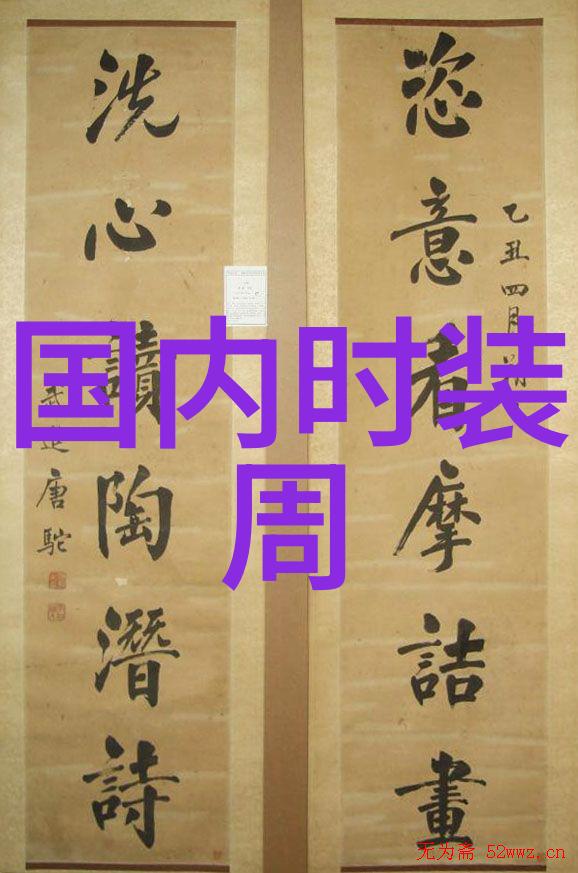 恣意看摩詰畫
乙丑四月
洗心讀陶潛詩
武進唐駝
国内时装
周
无为斋 52wwz.cn